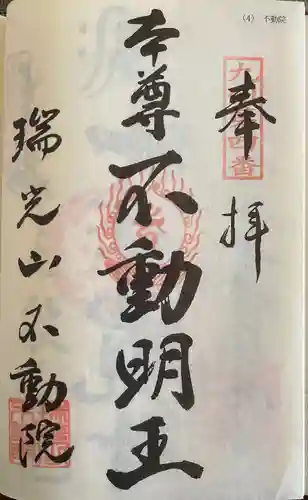 (4) 不動院
奉拝
本尊 不動明王
瑞光山不動院